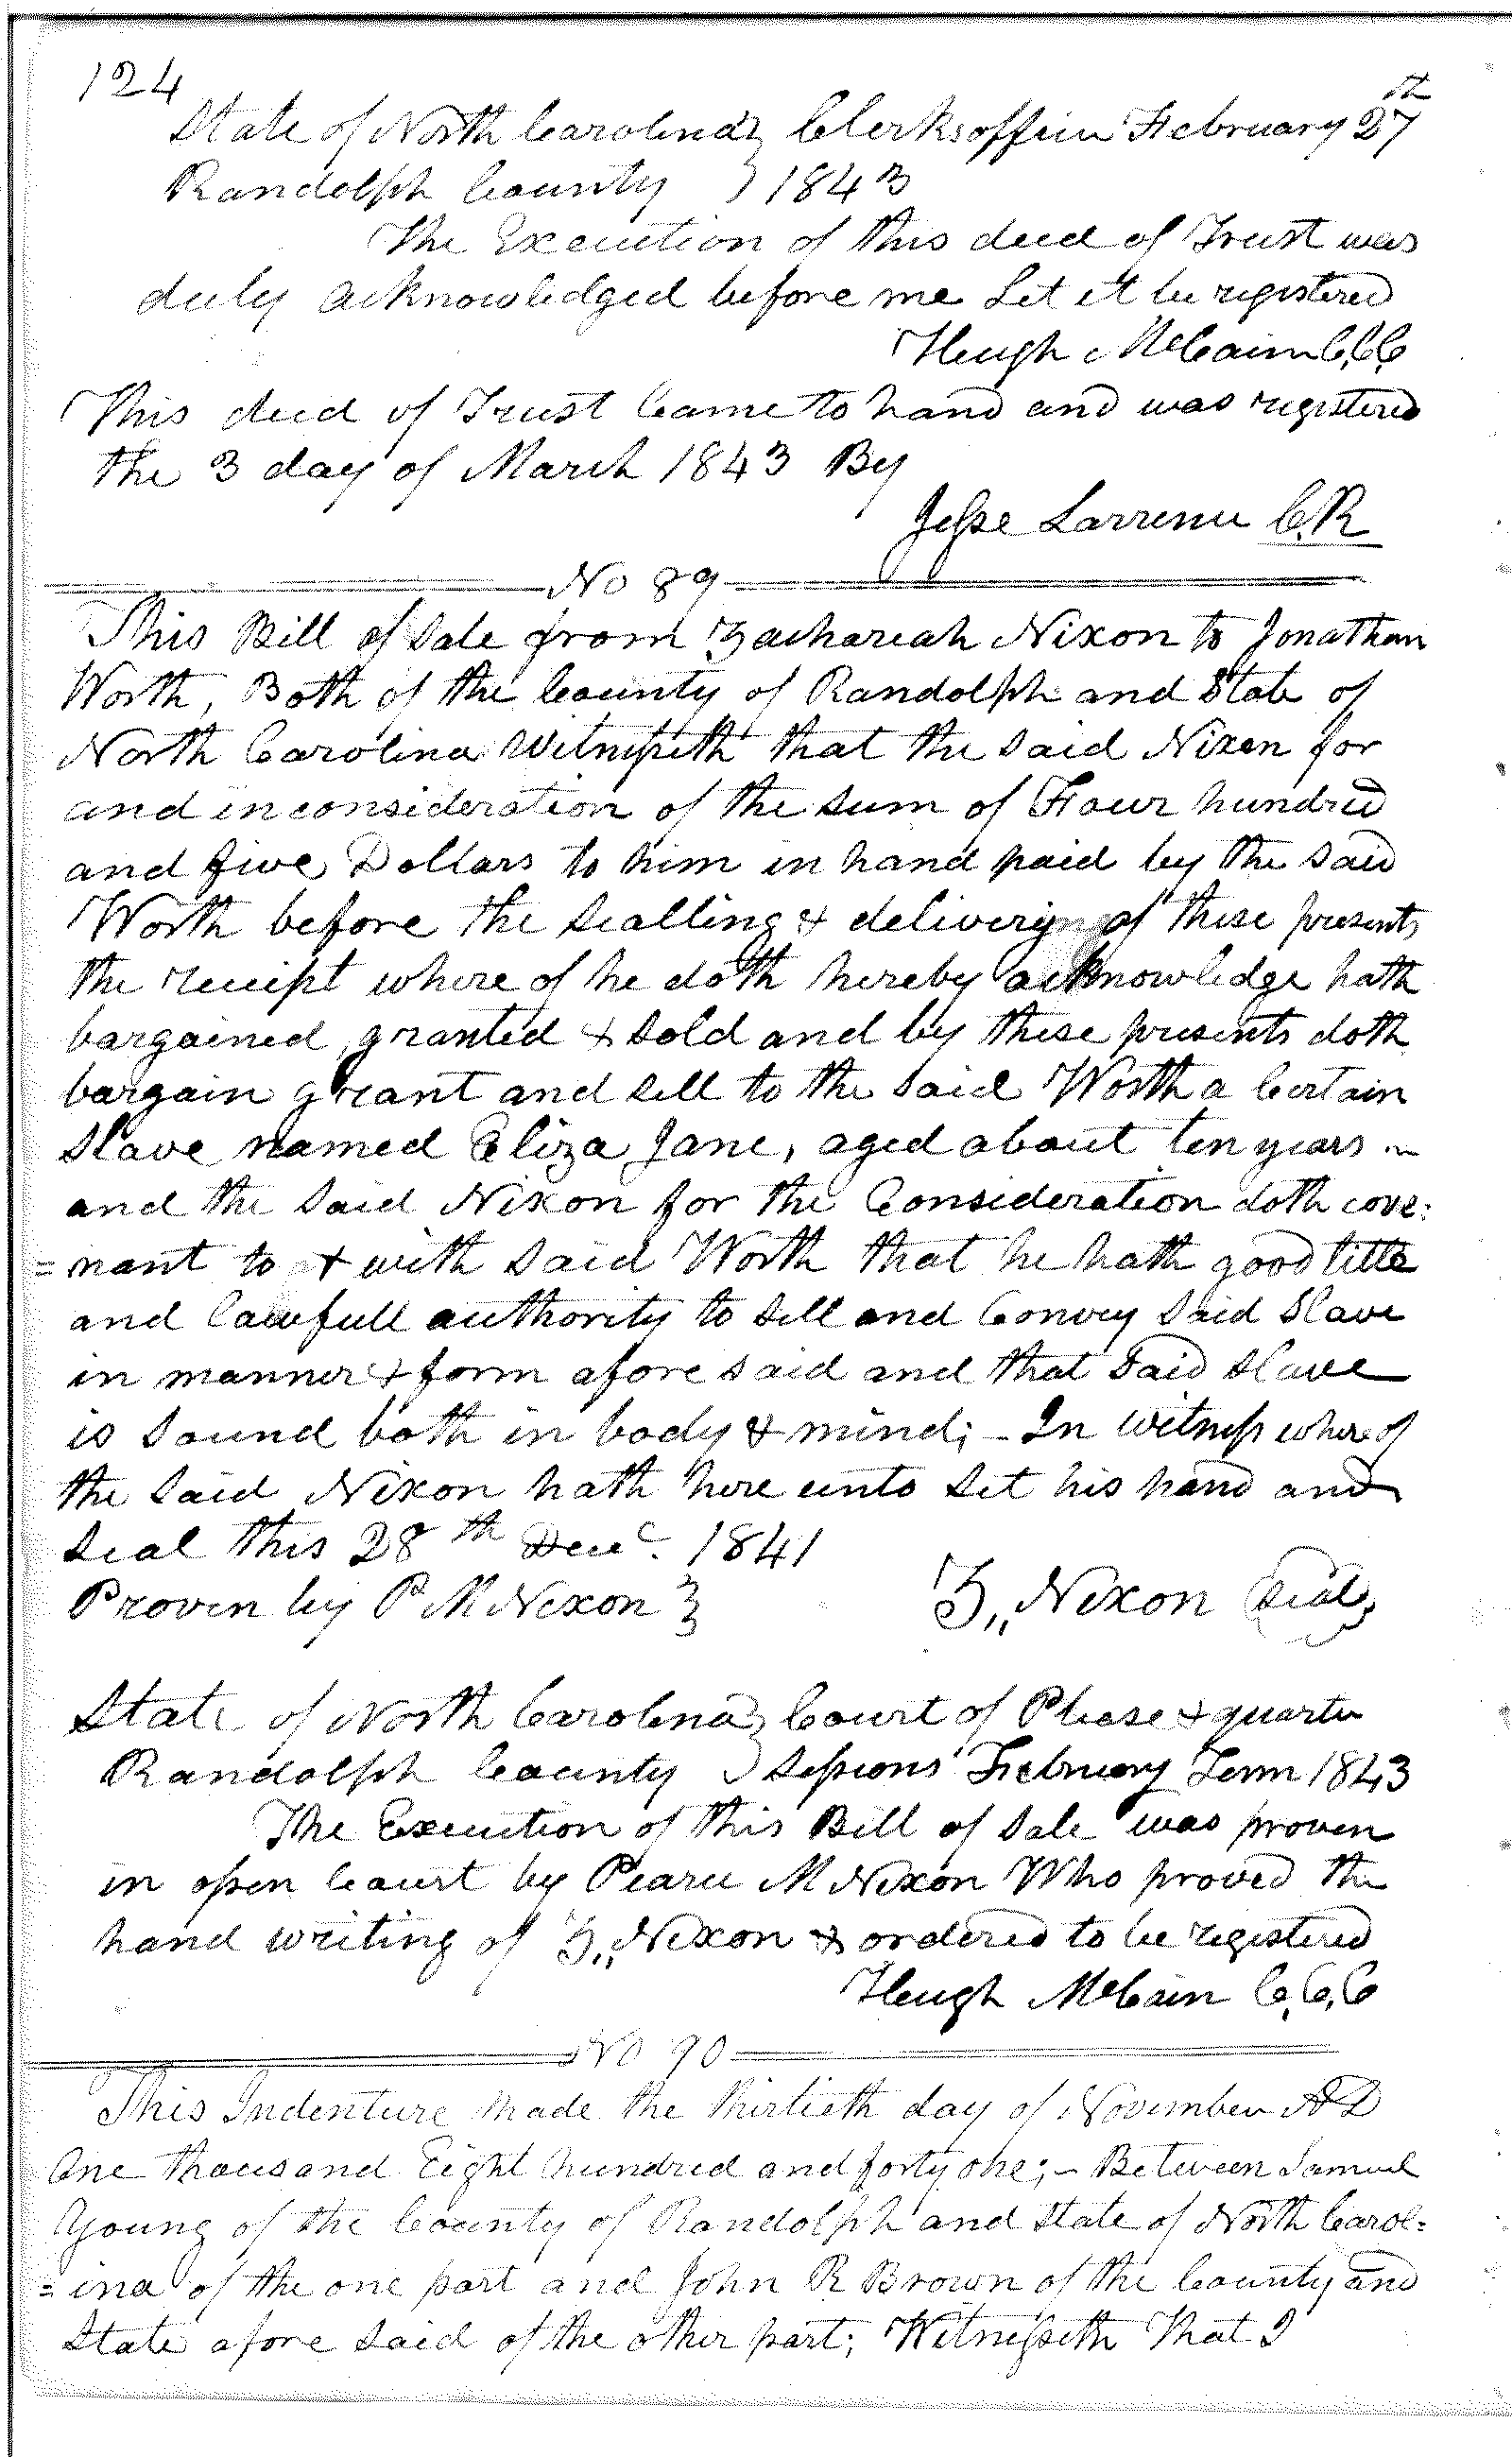 124
State of North Carolina } Clerks office February 27th
Randolph County } 1843
The Execution of this deed of Trust was
duly acknowledged before me Let it be registered
Hugh McCain C.C.C
This deed of Trust Came to hand and was registered
the 3 day of March 1843 By
Jesse Larrenu C.R
No 89
This Bill of Sale from Zachareah Nixon to Jonathan
Worth, Both of the County of Randolph and State of
North Carolina Witnesseth that the Said Nixon for
and in consideration of the Sum of Four hundred
and five Dollars to him in hand paid by the Said
Worth before the Sealling & deliveryng of these presents
the receipt where of he doth hereby acknowledge hath
bargained, granted & Sold and by these presents doth
bargain grant and Sell to the Said Worth a Certain
Slave named Eliza Jane, aged about ten years
and the Said Nixon for the Consideration doth cove=
=nant to & with Said Worth that he hath good title
and lawfull authority to Sell and Convey Said Slave
in manner & form afore Said and that Said Slave
is Sound both in body & mind; - In witness where of
the Said Nixon hath here unto Set his hand and
Seal this 28th Decc. 1841
Proven by P M Nixon } Z,, Nixon Seal
State of North Carolina } Court of Please & quarter
Randolph County } Sessions February Term 1843
The Execution of this Bill of Sale was proven
in open Court by Pearce M Nixon Who proved the
hand writing of Z,, Nixon & ordered to be registered
Hugh McCain C,C,C
No 90
This Indenture Made the thirtieth day of November AD
One thousand Eight hundred and forty one; - Between Samuel
Young of the County of Randolph and State of North Carol=
=ina of the one part and John R Brown of the County and
State afore Said of the other part; Witnesseth That I